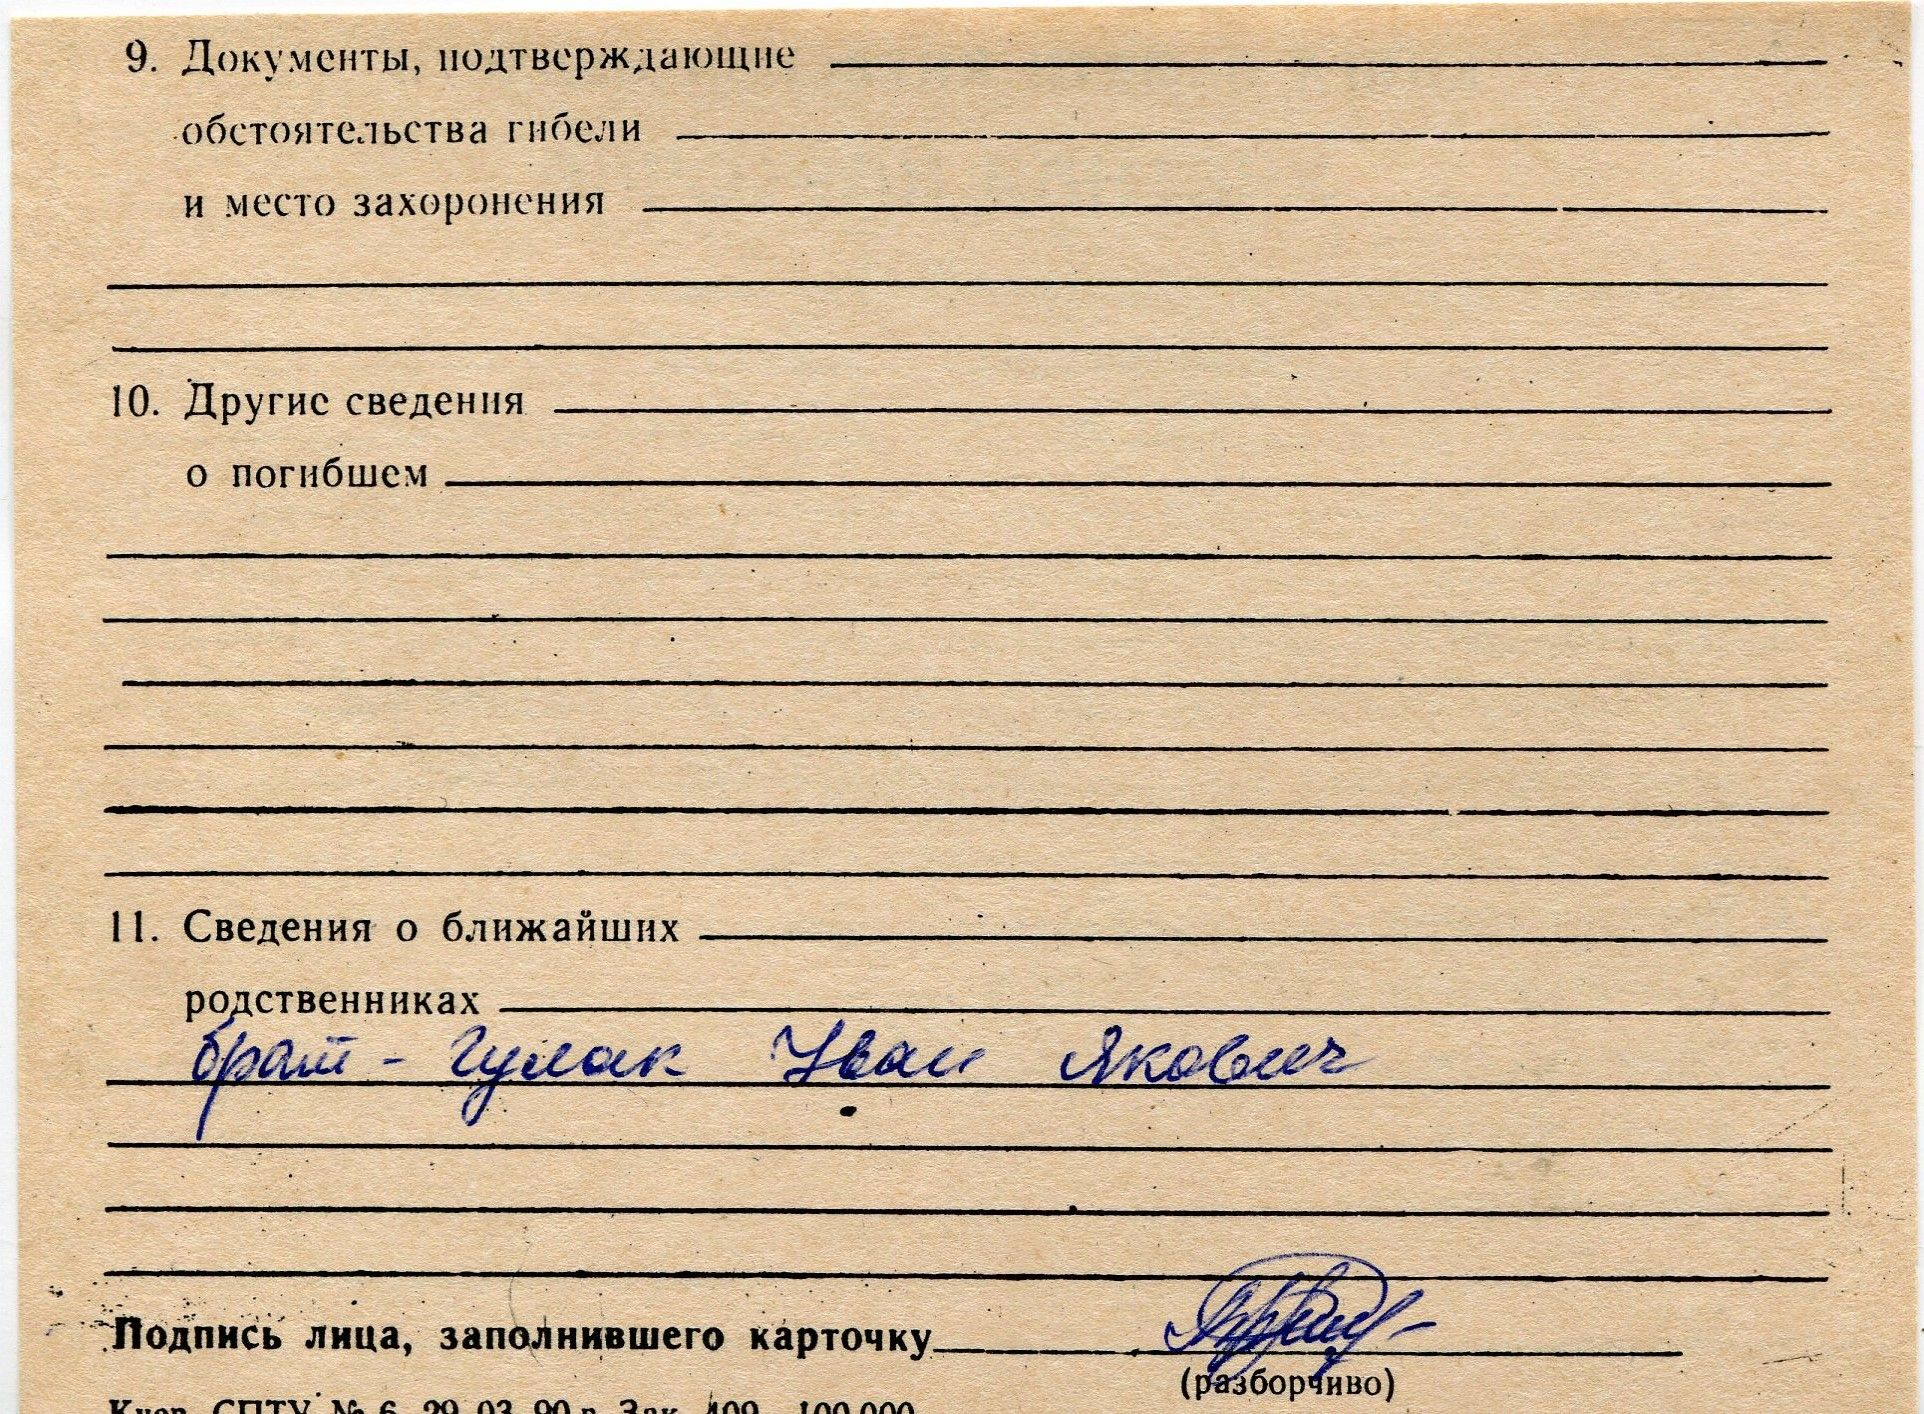 9. Документы, подтверждающие
обстоятельства гибели
и место захоронения
10. Другие сведения
о погибшем
11. Сведения о ближайших
родственниках
брат - Гулак Иван Якович
Подпись лица, заполнившего карточку
(разборчиво)
СПТУ № 6 29.03.90 г. Зак. 409 100.000